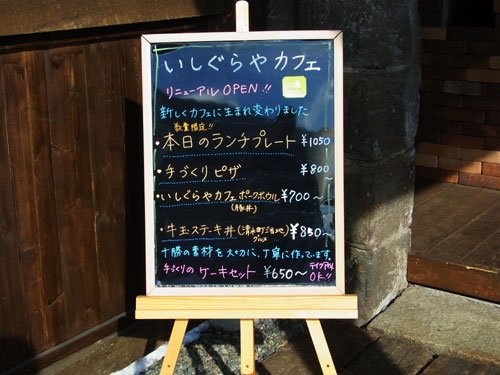 いしぐらやカフェ
リニューアル OPEN!!
新しくカフェに生まれ変わりました
数量限定!!
・本日のランチプレート ¥1050
・手づくりピザ ¥800～
・いしぐらやカフェ ポークボウル ¥700～
(豚丼)
・牛玉ステーキ丼 (清水町ご当地グルメ) ¥850～
十勝の素材を大切に、丁寧に作っています。
手づくりの ケーキセット ¥650～ テイクアウトOK!!